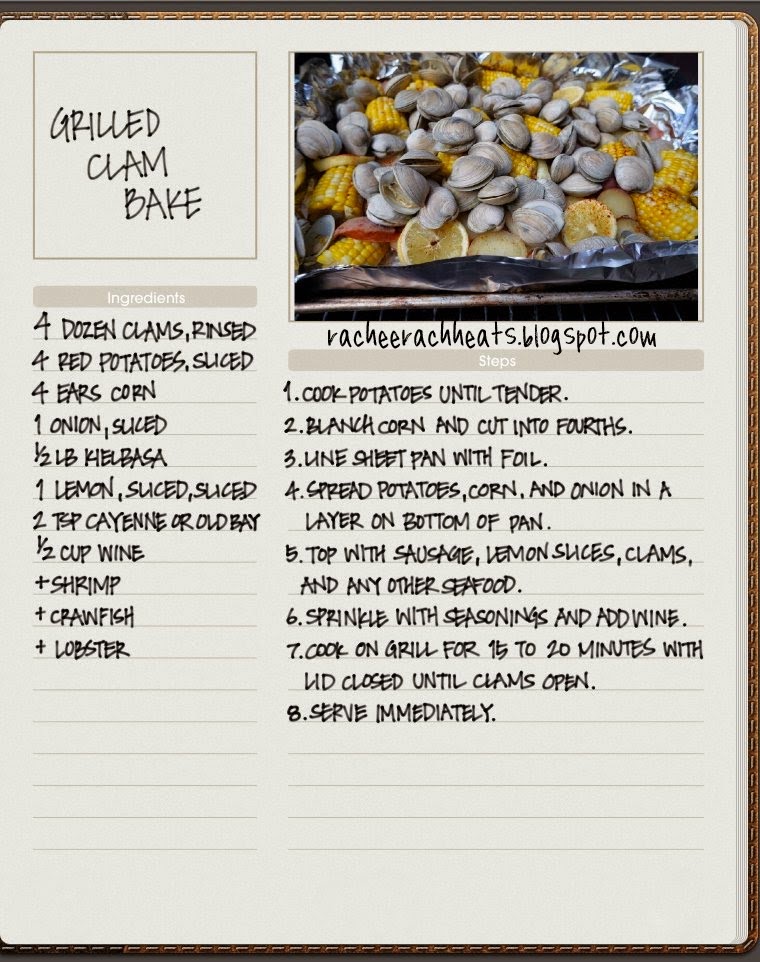 GRILLED
CLAM
BAKE
Ingredients
4 DOZEN CLAMS, RINSED
4 RED POTATOES, SLICED
4 EARS CORN
1 ONION, SLICED
½ LB KIELBASA
1 LEMON, SLICED, SLICED
2 TSP CAYENNE OR OLD BAY
½ CUP WINE
+ SHRIMP
+ CRAWFISH
+ LOBSTER
racheerachheats.blogspot.com
Steps
1. COOK POTATOES UNTIL TENDER.
2. BLANCH CORN AND CUT INTO FOURTHS.
3. LINE SHEET PAN WITH FOIL.
4. SPREAD POTATOES, CORN, AND ONION IN A
LAYER ON BOTTOM OF PAN.
5. TOP WITH SAUSAGE, LEMON SLICES, CLAMS,
AND ANY OTHER SEAFOOD.
6. SPRINKLE WITH SEASONINGS AND ADD WINE.
7. COOK ON GRILL FOR 15 TO 20 MINUTES WITH
LID CLOSED UNTIL CLAMS OPEN.
8. SERVE IMMEDIATELY.